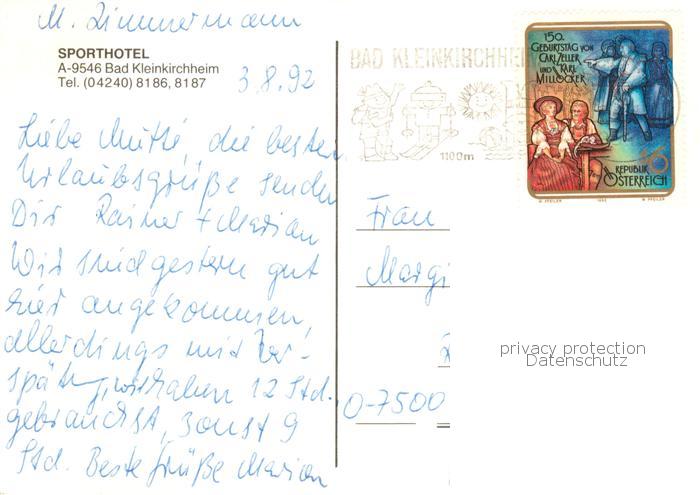 M. Zimmermann
SPORTHOTEL
A-9546 Bad Kleinkirchheim
Tel. (04240) 8186, 8187
3.8.92
Liebe Mutti, die besten
Urlaubsgrüße senden
Dir Rainer + Marian
Wir sind gestern gut
hier angekommen,
allerdings mit Ver-
spätg, wir haben 12 Std.
gebraucht, sonst 9
Std. Beste Grüße Marian
BAD KLEINKIRCHHEIM
1100m
150.
GEBURTSTAG VON
CARL ZELLER
UND KARL
MILLÖCKER
6
REPUBLIK
ÖSTERREICH
G. PFEILER 1992 W. PFEILER
Frau
Margi
O-7500
privacy protection
Datenschutz